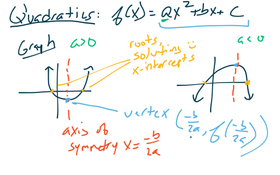 Quadratics: f(x) = ax² + bx + c
Graph a>0
roots
solutions
x-intercepts
a<0
vertex (-b/2a, f(-b/2a))
axis of
symmetry x = -b/2a